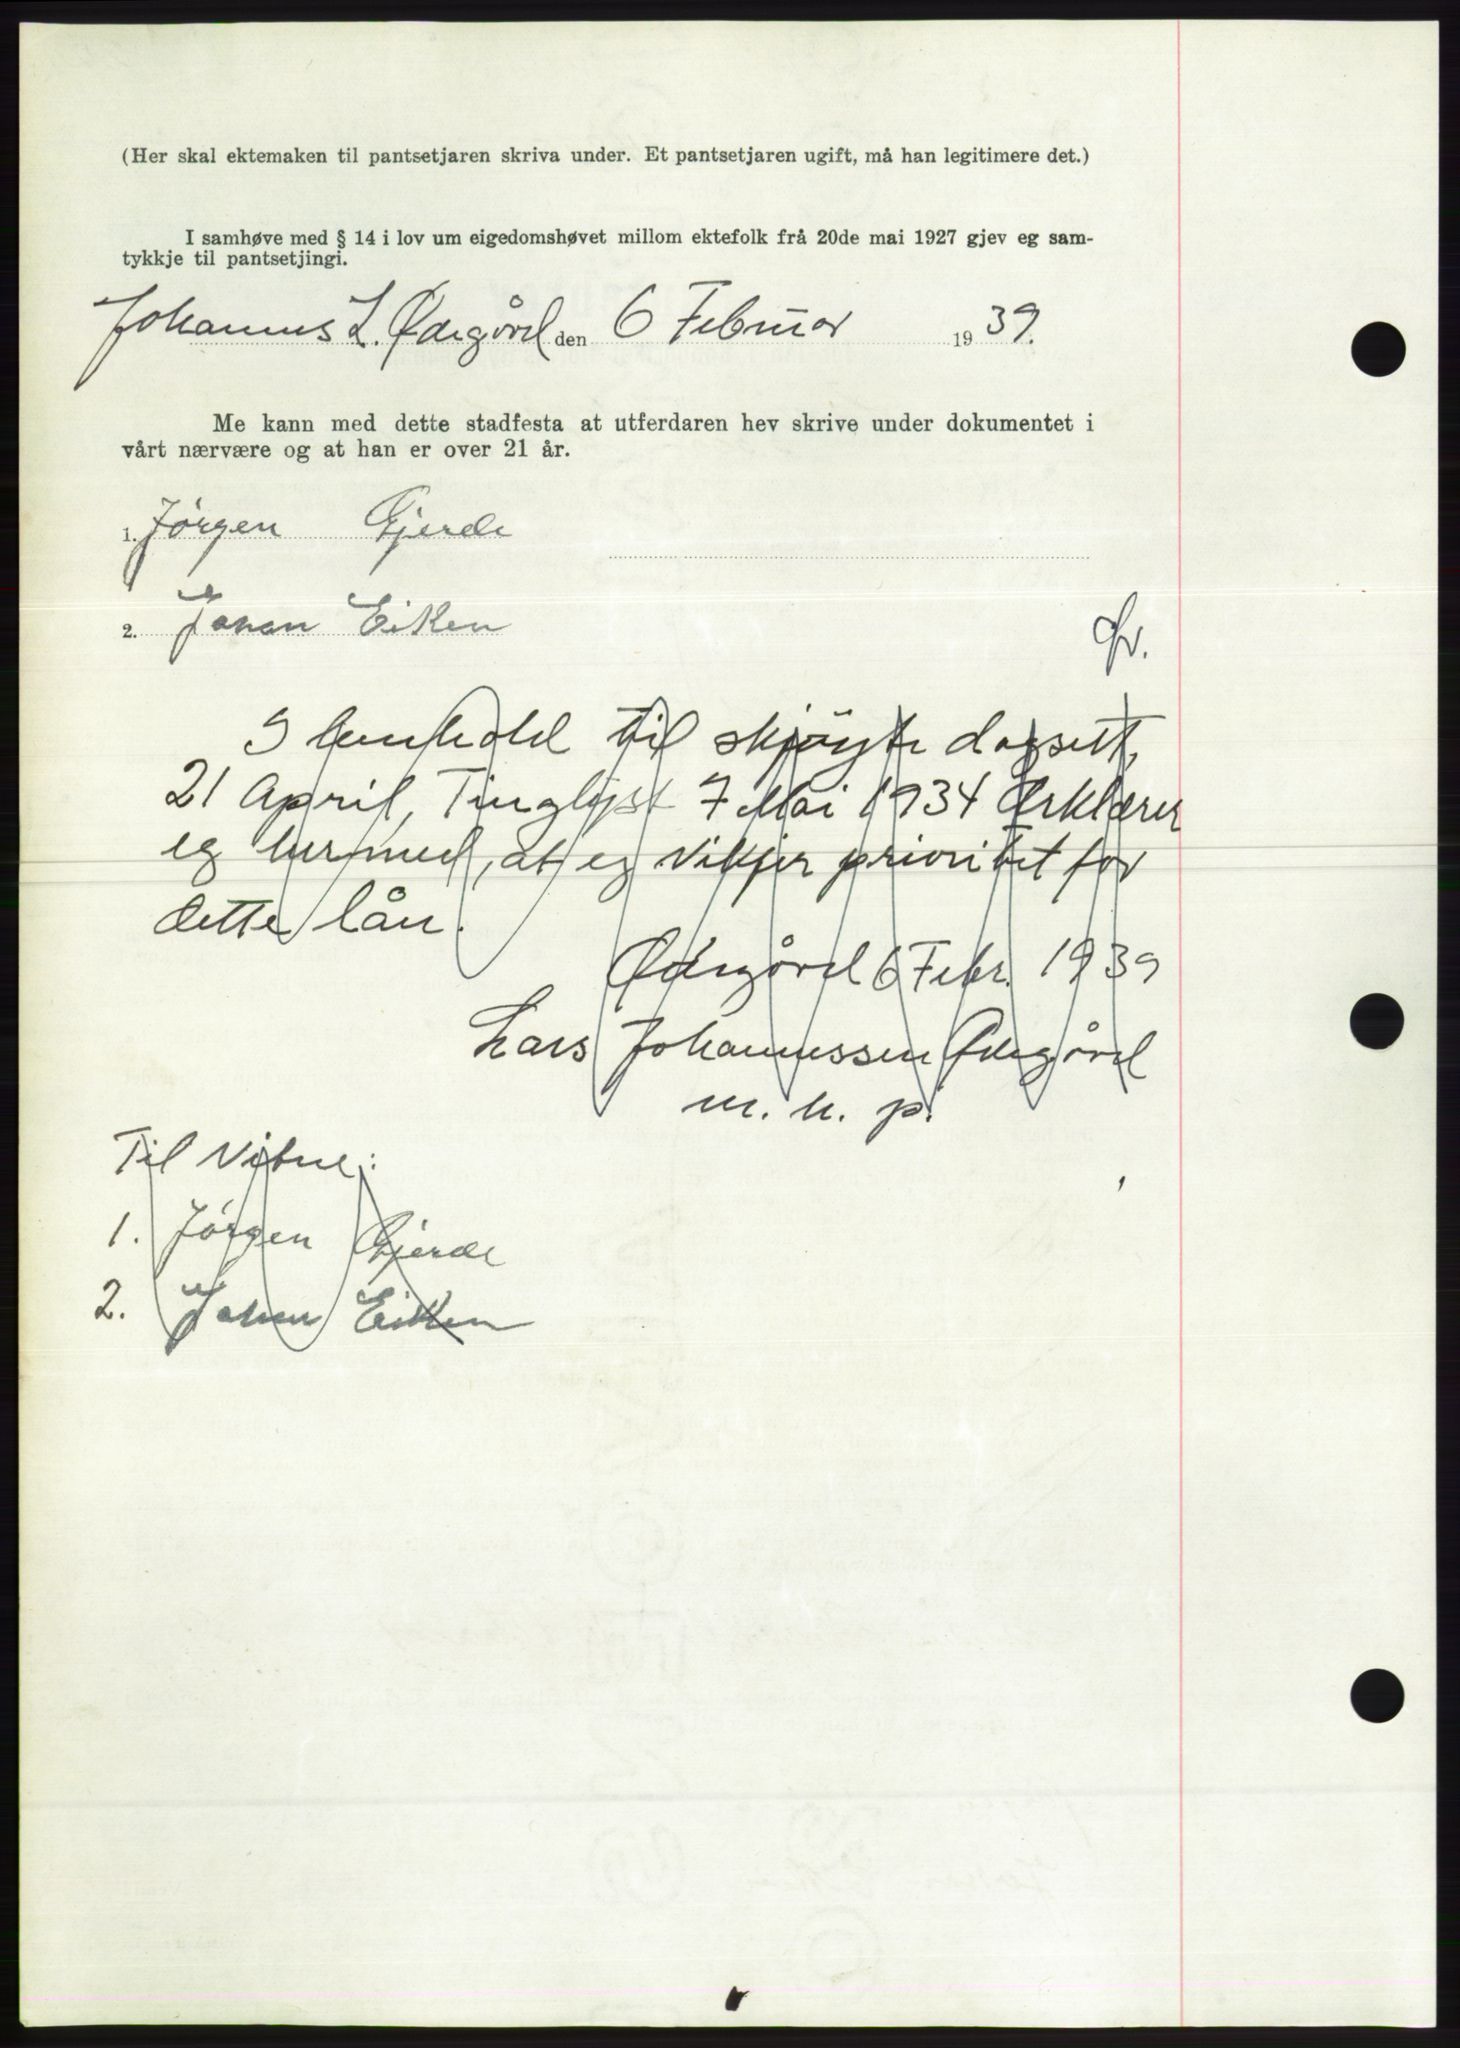 (Her skal ektemaken til pantsetjaren skriva under. Et pantsetjaren ugift, må han legitimere det.)
I samhøve med § 14 i lov um eigedomshøvet millom ektefolk frå 20de mai 1927 gjev eg sam-
tykkje til pantsetjingi.
Johannes L. Ødegård den 6 Februar 1939.
Me kann med dette stadfesta at utferdaren hev skrive under dokumentet i
vårt nærvære og at han er over 21 år.
1. Jørgen Gjerde
2. Johan Eiken
I henhold til skjøyte dagsett,
21 April, Tinglyst 7 Mai 1934 Ærklærer
eg hermed, at eg vikjer prioritet for
dette lån.
Ødegård 6 Febr. 1939
Lars Johannessen Ødegård
m. h. p.
Til Vitne:
1. Jørgen Gjerde
2. Johan Eiken